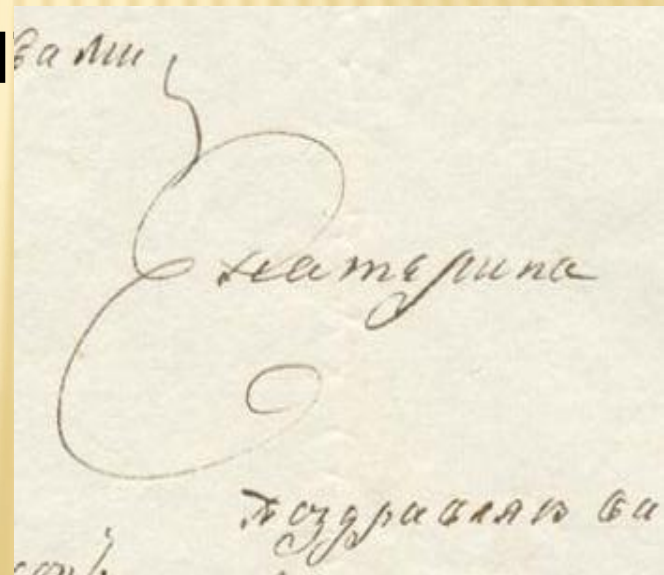 вами
Екатерина
Поздравляю ва